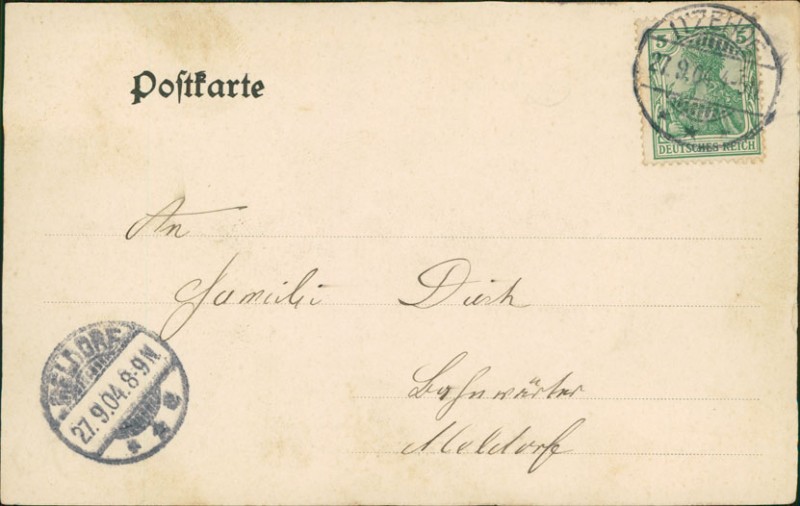 Postkarte
5 5
ITZEHOE
27.9.04
DEUTSCHES REICH
An
Familie Dirk
Bahnwärter
Meldorf
MELDORF
27.9.04.8-9N.